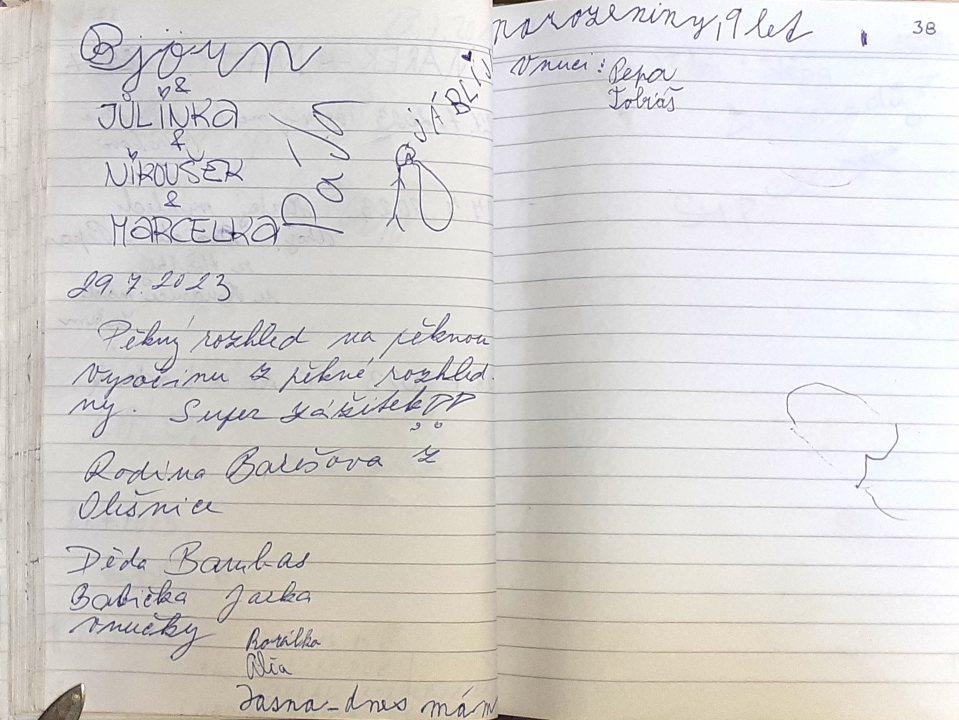 Björn
&
JŮLINKA
&
NIKOUŠEK
&
MARCELKA
Pája
JÁBLÍJ
29.7.2023
Pěkný rozhled na pěknou
Vysočinu z pěkné rozhled.
ny. Super zážitek!!
Rodina Barešova z
Olešnice
Děda Bambas
Babička Jarka
vnučky
Rozálka
Alia
Jasna-dnes mám
narozeniny, 9 let
38
Vnuci: Pepa
Tobiáš